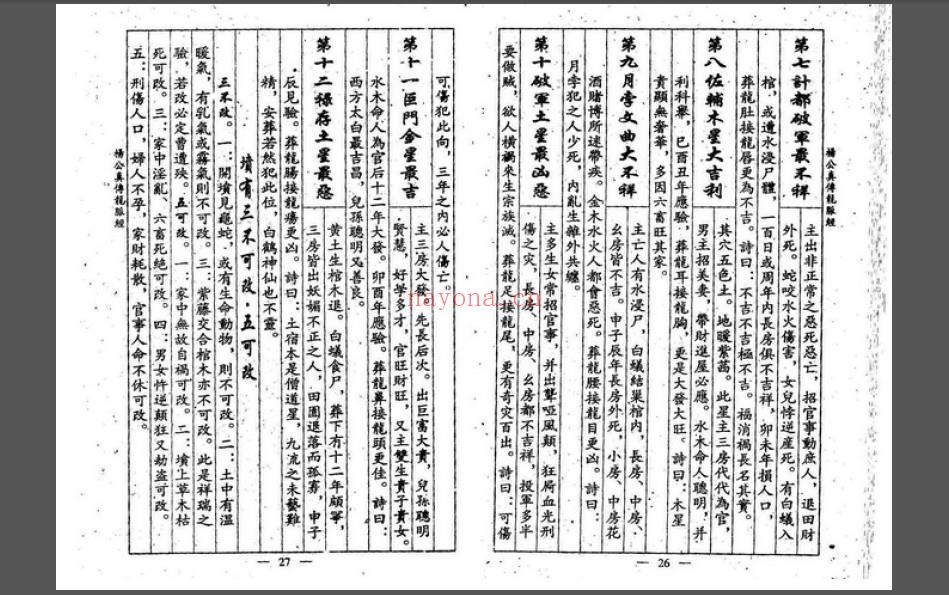 楊公真傳龍脈經
第七計都破軍最不祥
主出非正常之惡死惡亡，招官事動庶人，退田財
外死。蛇咬水火傷害，女兒悖逆產死。有白蟻入
棺，或遭水浸尸體，一百日或周年內長房俱不吉祥，卯未年損人口，
葬龍肚接龍唇更為不吉。詩曰：不吉不吉極不吉。福消禍長名其實。
第八佐輔木星大吉利
其穴五色土。地暖紫藹。此星主三房代代為官，
男主招美妻，帶財進屋必應。水木命人聰明，并
利科舉，已酉丑年應驗，葬龍耳接龍胸，更是大發大旺。詩曰：木星
貴顯無奢華，多因六畜旺其家。
第九月孛文曲大不祥
主亡人有水浸尸，白蟻結巢棺內，長房、中房、
幺房皆不吉。申子辰年長房外死，小房、中房花
酒賭博所述帶疾。金木水火人都會惡死。葬龍腰接龍目更凶。詩曰：
月孛犯之人少死，內亂生離外共纏。
第十破軍土星最凶惡
主多生女常招官事，并出聾啞風顛，狂癆血光刑
傷之灾，長房、中房、幺房都不吉祥，投軍多半
要做賊，欲人橫禍來生宗族滅。葬龍足接龍尾，更有奇灾百出。詩曰：可傷
— 26 —
可傷犯此向，三年之內必人傷亡。
第十一巨門金星最吉
主三房大發，先長后次。出巨富大貴，兒孫聰明
賢慧，好學多才，官旺財旺，又主雙生貴子貴女。
水木命人為官后十二年大發。卯酉年應驗。葬龍鼻接龍頭更佳。詩曰：
西方太白最吉昌，兒孫聰明又善良。
第十二祿存土星最惡
黃土生棺木退。白蟻食尸，葬下有十二年顛寧，
三房皆出妖媚不正之人，田園退落而孤寡，申子
辰見驗。葬龍腸接龍瘍更凶。詩曰：土宿本是僧道星，九流之未藝難
精，安葬若然犯此位，白鶴神仙也不靈。
墳有三不可改·五可改
三不改。一：開墳見龜蛇，或有生命動物，則不可改。二：土中有溫
暖氣，有乳氣或霧氣則不可改。三：紫藤交合棺木亦不可改。此是祥瑞之
驗，若改必定曾遺殃。五可改。一：家中無故自禍可改。二：墳上草木枯
死可改。三：家中淫亂、六畜死絕可改。四：男女忤逆顛狂又劫盜可改。
五：刑傷人口，婦人不孕，家財耗散，官事人命不休可改。
楊公真傳龍脈經
— 27 —
nayona.cn